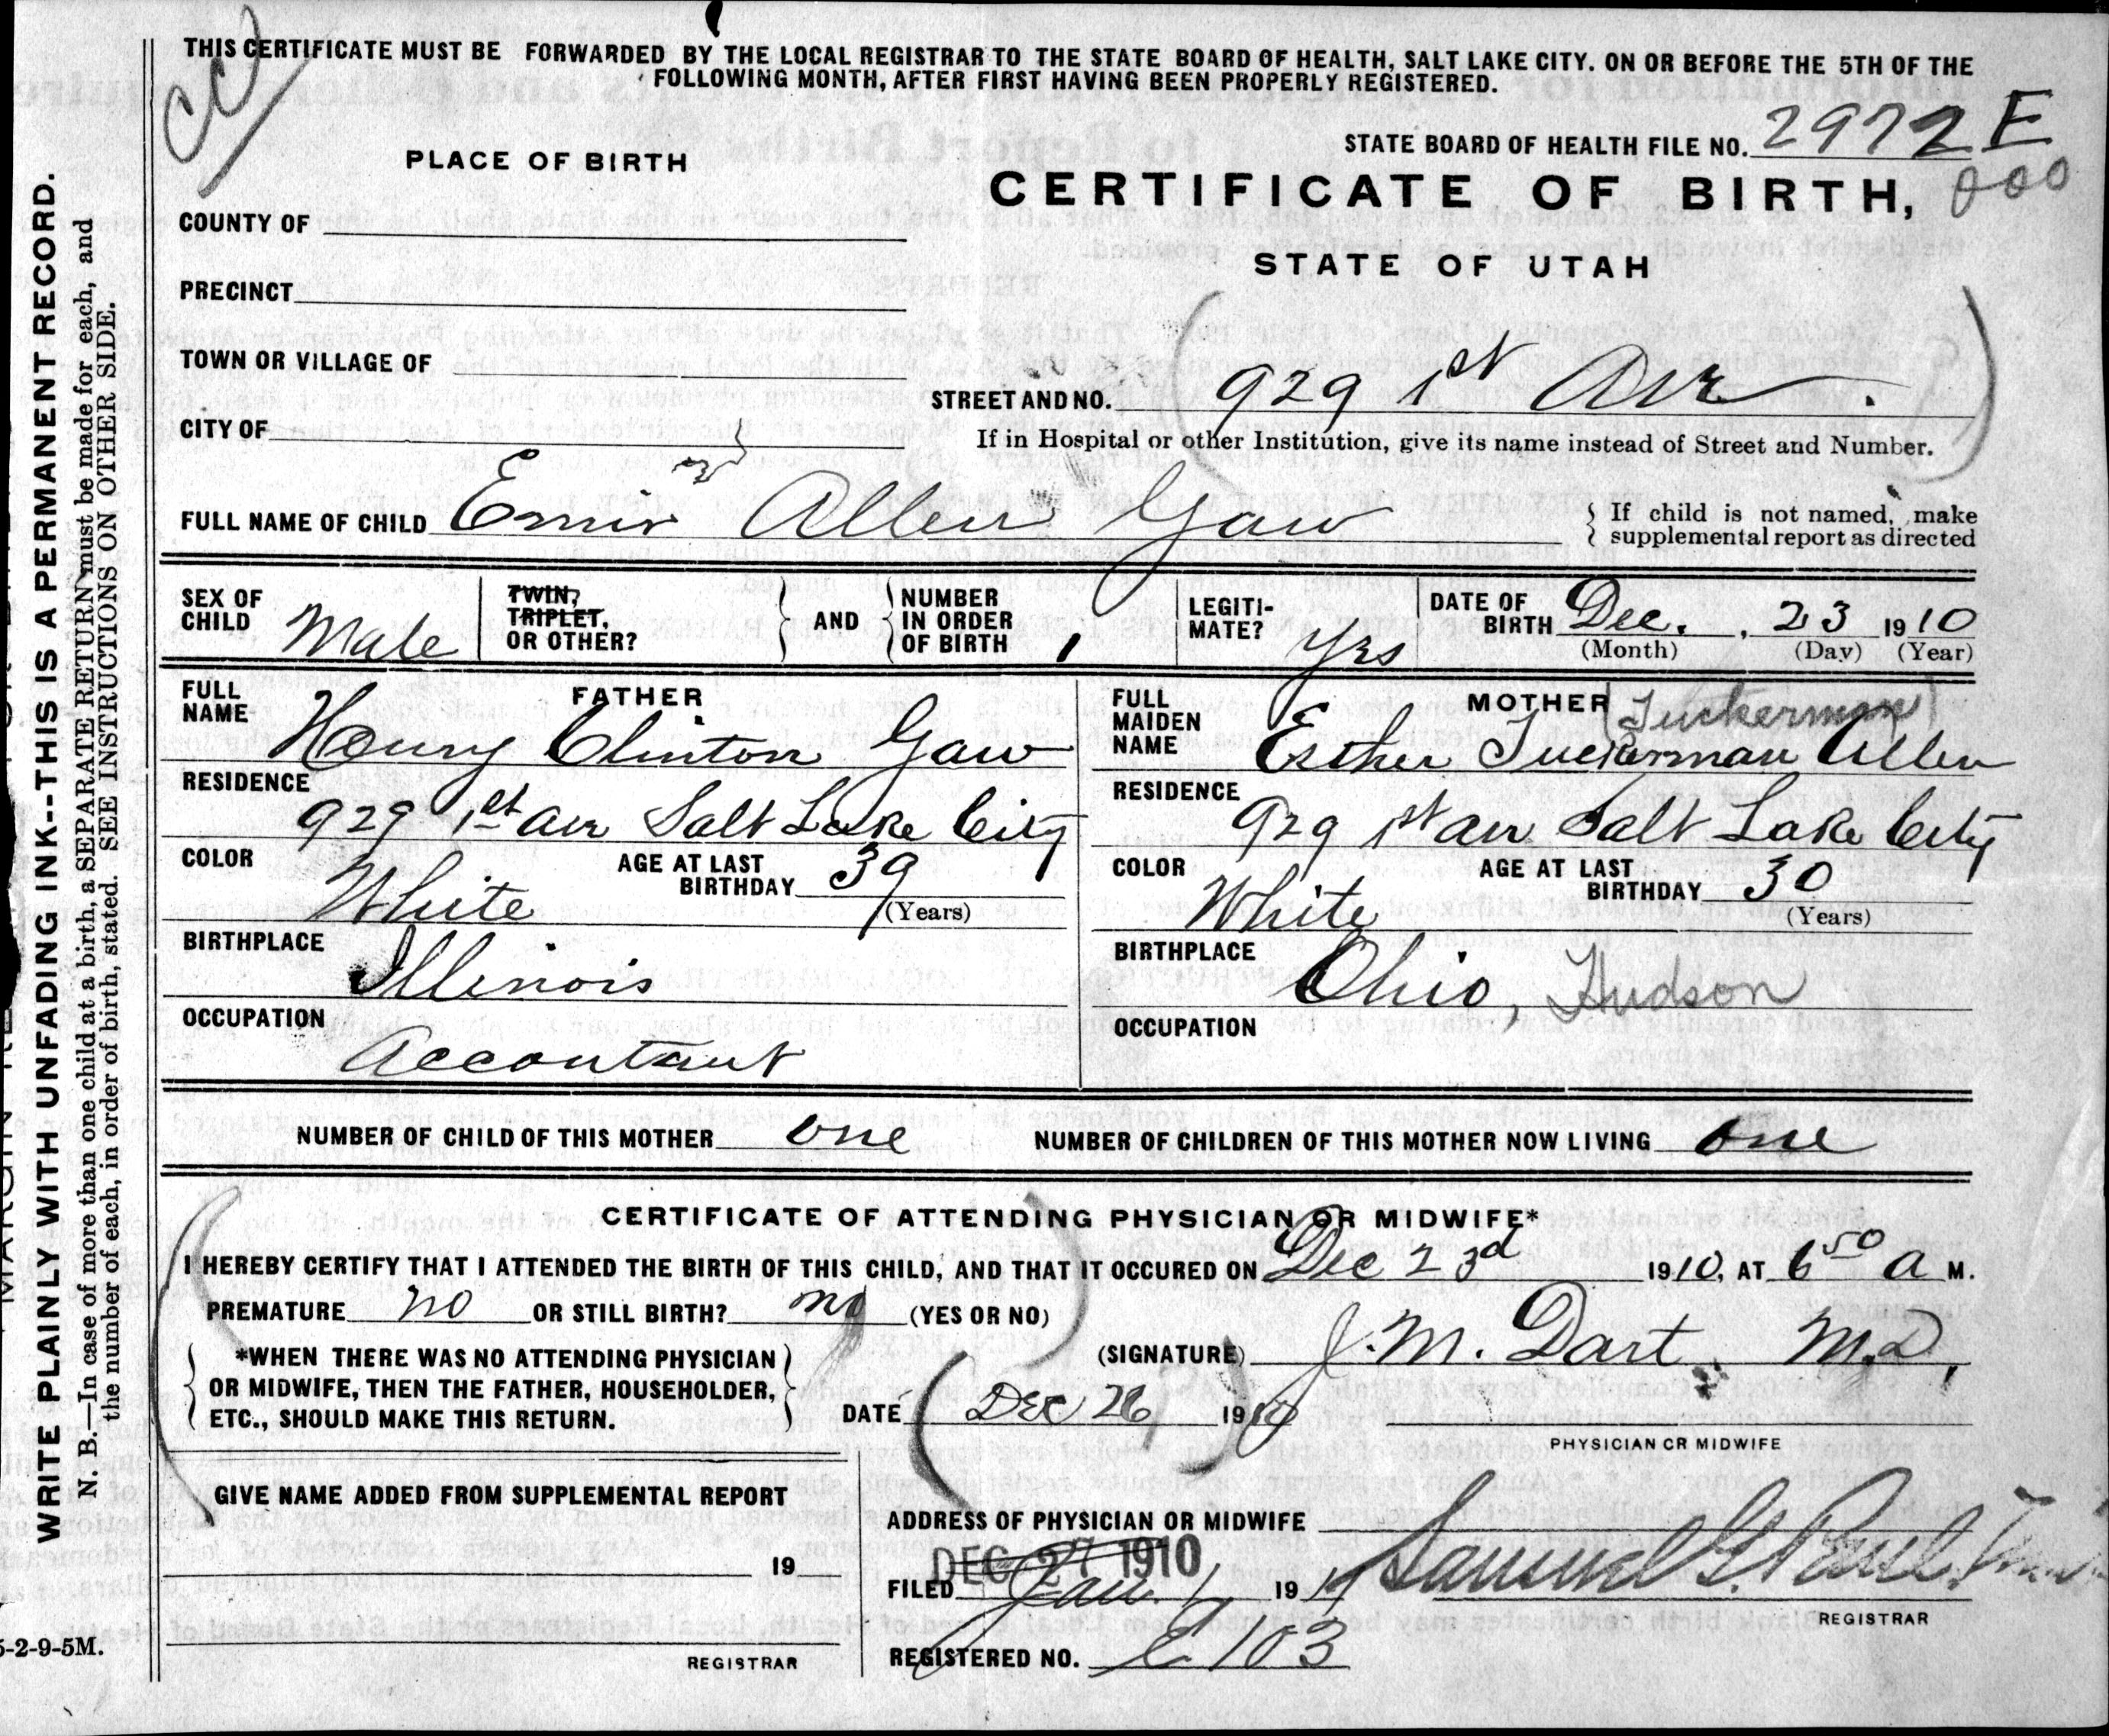 THIS CERTIFICATE MUST BE FORWARDED BY THE LOCAL REGISTRAR TO THE STATE BOARD OF HEALTH, SALT LAKE CITY. ON OR BEFORE THE 5TH OF THE
FOLLOWING MONTH, AFTER FIRST HAVING BEEN PROPERLY REGISTERED.
STATE BOARD OF HEALTH FILE NO. 2972 E
000
PLACE OF BIRTH
CERTIFICATE OF BIRTH,
STATE OF UTAH
COUNTY OF
PRECINCT
TOWN OR VILLAGE OF
STREET AND NO. 929 1st Ave.
CITY OF
If in Hospital or other Institution, give its name instead of Street and Number.
FULL NAME OF CHILD Allen Gaw
If child is not named, make
supplemental report as directed
SEX OF CHILD Male
TWIN, TRIPLET, OR OTHER?
AND
NUMBER IN ORDER OF BIRTH 1
LEGITI-MATE? Yes
DATE OF BIRTH Dec. 23 1910
(Month) (Day) (Year)
FATHER
FULL NAME Henry Clinton Gaw
RESIDENCE 929 1st Ave Salt Lake City
COLOR White AGE AT LAST BIRTHDAY 39
(Years)
BIRTHPLACE Illinois
OCCUPATION Accontant
MOTHER (Tuckerman)
FULL MAIDEN NAME Esther Tuckerman Allen
RESIDENCE 929 1st Ave Salt Lake City
COLOR White AGE AT LAST BIRTHDAY 30
(Years)
BIRTHPLACE Ohio, Hudson
OCCUPATION
NUMBER OF CHILD OF THIS MOTHER one NUMBER OF CHILDREN OF THIS MOTHER NOW LIVING one
CERTIFICATE OF ATTENDING PHYSICIAN OR MIDWIFE*
I HEREBY CERTIFY THAT I ATTENDED THE BIRTH OF THIS CHILD, AND THAT IT OCCURED ON Dec 23d 1910, AT 6 50 a M.
PREMATURE no OR STILL BIRTH? no (YES OR NO)
*WHEN THERE WAS NO ATTENDING PHYSICIAN
OR MIDWIFE, THEN THE FATHER, HOUSEHOLDER,
ETC., SHOULD MAKE THIS RETURN.
(SIGNATURE) J. M. Dart M.D.
DATE Dec 26 1910
PHYSICIAN OR MIDWIFE
GIVE NAME ADDED FROM SUPPLEMENTAL REPORT
19
REGISTRAR
ADDRESS OF PHYSICIAN OR MIDWIFE
DEC 27 1910
FILED Jan. 1 191 Samuel G. Paul
REGISTRAR
REGISTERED NO. E 103
WRITE PLAINLY WITH UNFADING INK--THIS IS A PERMANENT RECORD.
N. B.—In case of more than one child at a birth, a SEPARATE RETURN must be made for each, and
the number of each, in order of birth, stated. SEE INSTRUCTIONS ON OTHER SIDE.
5-2-9-5M.